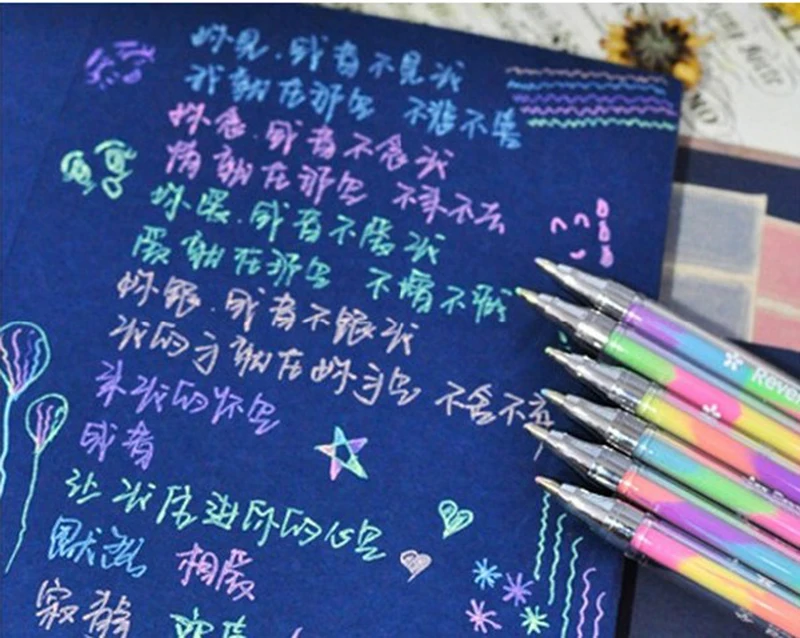 妳見，或者不見我
我就在那里 不悲不喜
妳念，或者不念我
情就在那里 不来不去
妳愛，或者不愛我
愛就在那里 不增不减
妳跟，或者不跟我
我的手就在妳手里 不舍不弃
来我的怀里
或者
让我住进你的心里
默然 相愛
寂静 欢喜